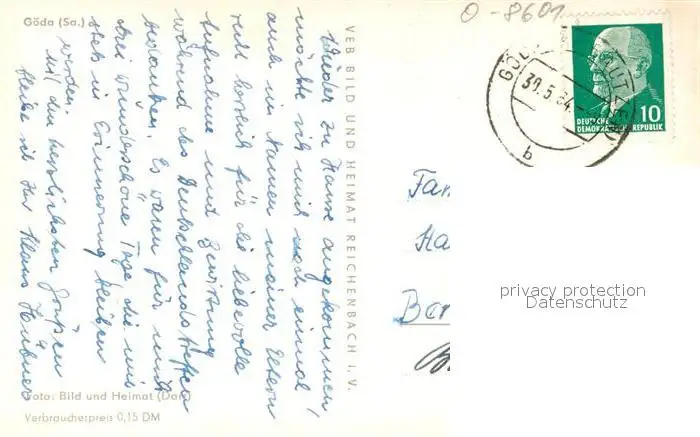 Göda (Sa.)
O-8601
GÖD
BAUTZEN
30.5.64
b
10
DEUTSCHE
DEMOKRATISCHE REPUBLIK
VEB BILD UND HEIMAT REICHENBACH I. V.
Wieder zu Hause angekommen,
möchte ich mich noch einmal
auch im Namen meiner Eltern
recht herzlich für die liebevolle
Aufnahme und Bewirtung
während des Deutschlandtreffen
bedanken. Es waren für mich
drei wunderschöne Tage die mir
stets in Erinnerung bleiben
werden.
Mit den herzlichsten Grüßen
bleibe ich Ihr Klaus Hübner
Fam
Ha
privacy protection
Datenschutz
Foto: Bild und Heimat
Verbraucherpreis 0,15 DM